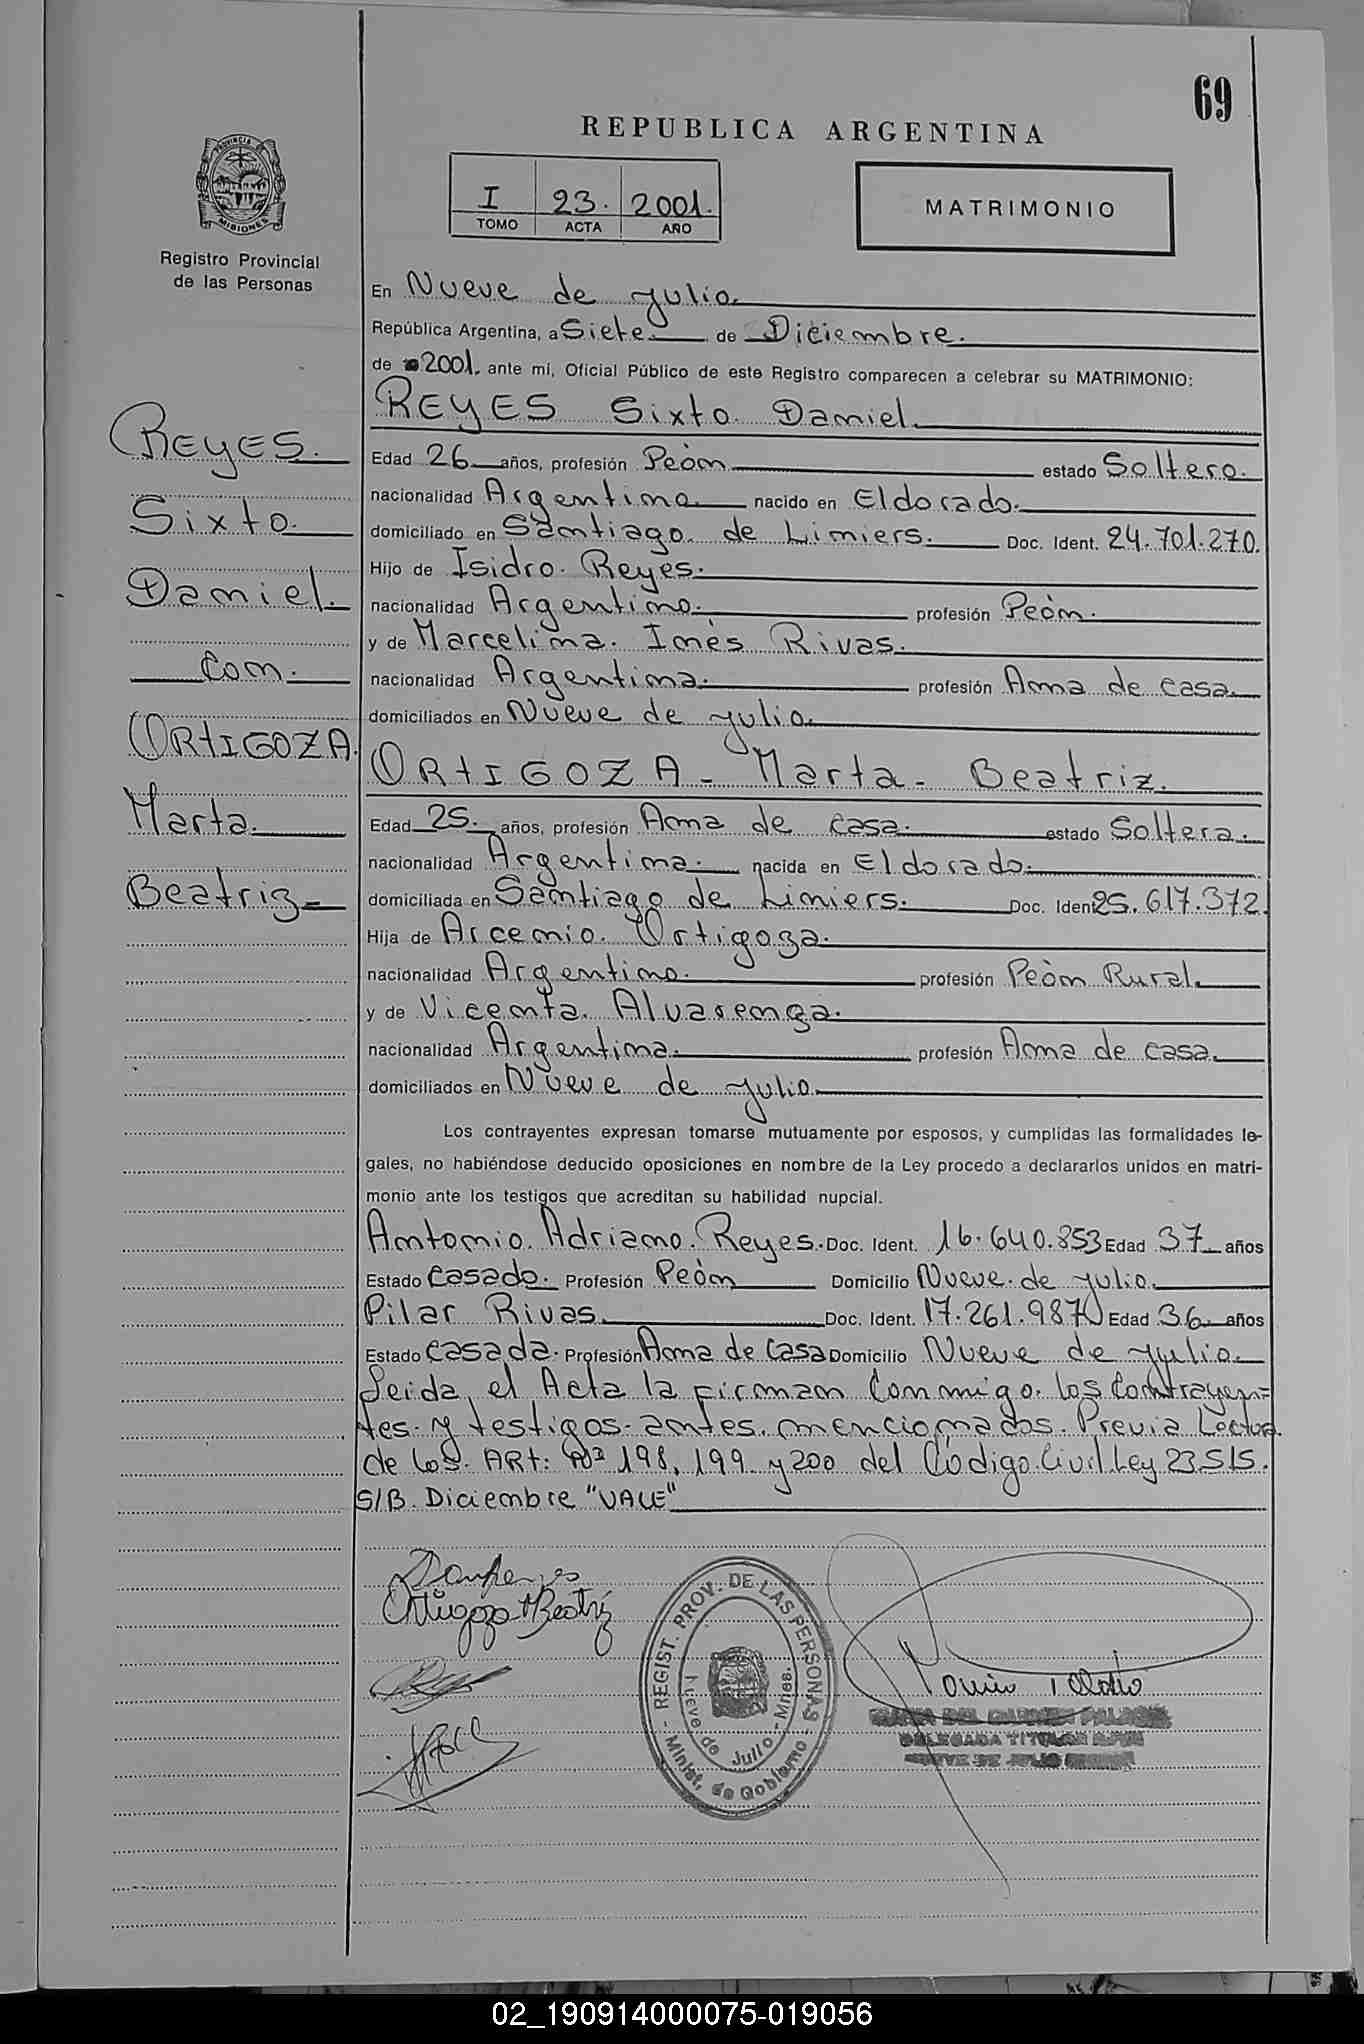 69
REPUBLICA ARGENTINA
PROVINCIA DE
MISIONES
Registro Provincial
de las Personas
I 23. 2001.
TOMO ACTA AÑO
MATRIMONIO
REYES.
Sixto
Daniel.
Con.
ORTIGOZA.
Marta.
Beatriz
En Nueve de Julio.
República Argentina, a Siete. de Diciembre.
de 2001. ante mí, Oficial Público de este Registro comparecen a celebrar su MATRIMONIO:
REYES Sixto Daniel.
Edad 26 años, profesión Peòn estado Soltero.
nacionalidad Argentino nacido en Eldorado.
domiciliado en Santiago de Limiers. Doc. Ident. 24.701.270.
Hijo de Isidro. Reyes.
nacionalidad Argentino. profesión Peòn.
y de Marcelina. Inés Rivas.
nacionalidad Argentina. profesión Ama de casa.
domiciliados en Nueve de Julio.
ORTIGOZA - Marta - Beatriz.
Edad 25. años, profesión Ama de casa. estado Soltera.
nacionalidad Argentina. nacida en Eldorado.
domiciliada en Santiago de Limiers. Doc. Iden 25.617.372.
Hija de Arcenio. Ortigoza.
nacionalidad Argentino. profesión Peòn Rural.
y de Vicenta. Alvarenga.
nacionalidad Argentina. profesión Ama de casa.
domiciliados en Nueve de Julio
Los contrayentes expresan tomarse mutuamente por esposos, y cumplidas las formalidades le-
gales, no habiéndose deducido oposiciones en nombre de la Ley procedo a declararlos unidos en matri-
monio ante los testigos que acreditan su habilidad nupcial.
Antonio. Adriano. Reyes. Doc. Ident. 16.640.853 Edad 37 años
Estado Casado. Profesión Peòn Domicilio Nueve. de Julio.
Pilar Rivas. Doc. Ident. 17.261.987 Edad 36 años
Estado Casada. Profesión Ama de Casa Domicilio Nueve de Julio.
Leida el Acta la firman Conmigo. los Contrayen=
tes. y testigos. antes. mencionados. Previa Lectura.
de los. ART: Nº 198, 199 y 200 del Código. Civil Ley 23.515.
S/B. Diciembre "VALE"
Ortigoza M Beatriz
REGIST. PROV. DE LAS PERSONAS
Nueve de Julio - Mnes.
Minist. de Gobierno
DELEGADA TITULAR
NUEVE DE JULIO
02_190914000075-019056